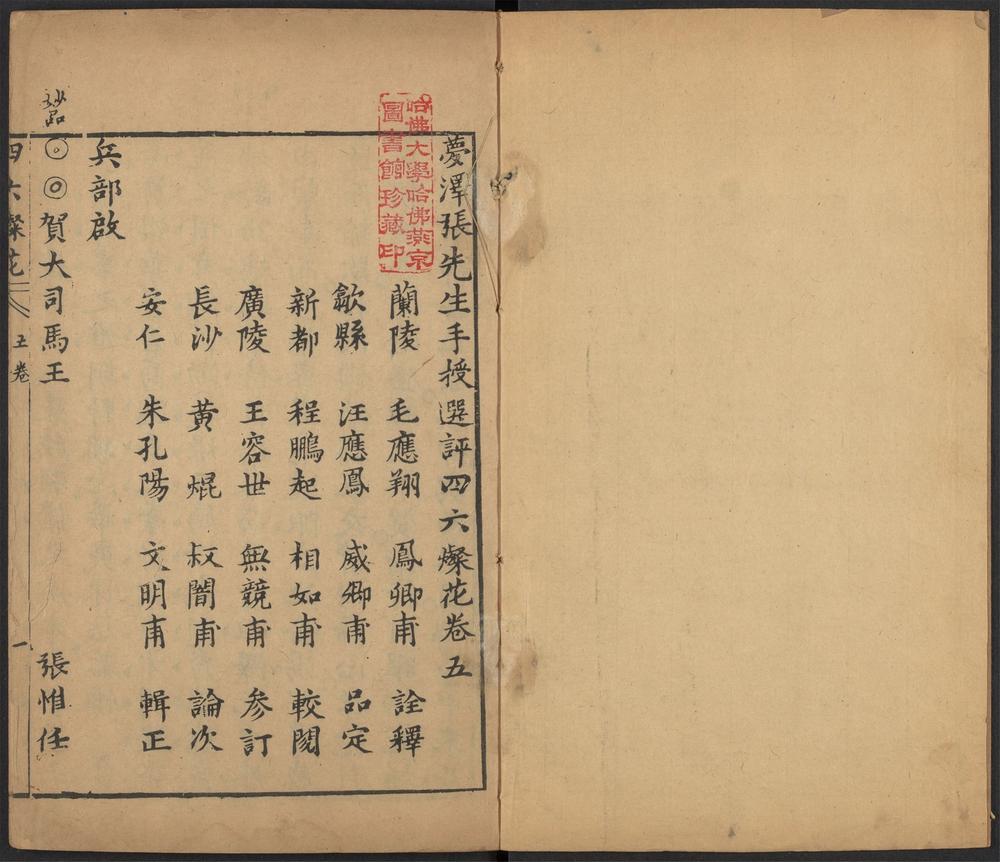 夢澤張先生手授選評四六燦花卷五
蘭陵 毛應翔 鳳卿甫 詮釋
歙縣 汪應鳳 威卿甫 品定
新都 程鵬起 相如甫 較閱
廣陵 王容世 無競甫 參訂
長沙 黃焜 叔闇甫 論次
安仁 朱孔陽 文明甫 輯正
兵部啟
◎◎賀大司馬王 張惟任
四六燦花 五卷 一
哈佛大學哈佛燕京
圖書館珍藏印